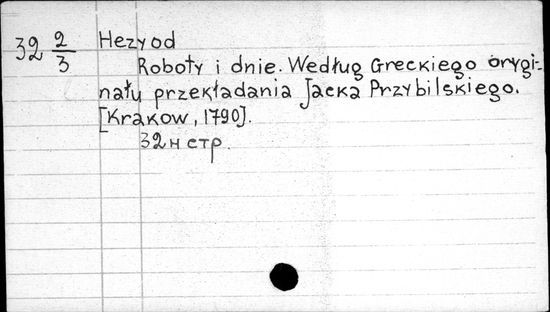 32 2/3 Hezyod
Roboty i dnie. Według Greckiego orygi-
nału przekładania Jacka Przybilskiego.
[Krakow, 1790].
32 н стр.